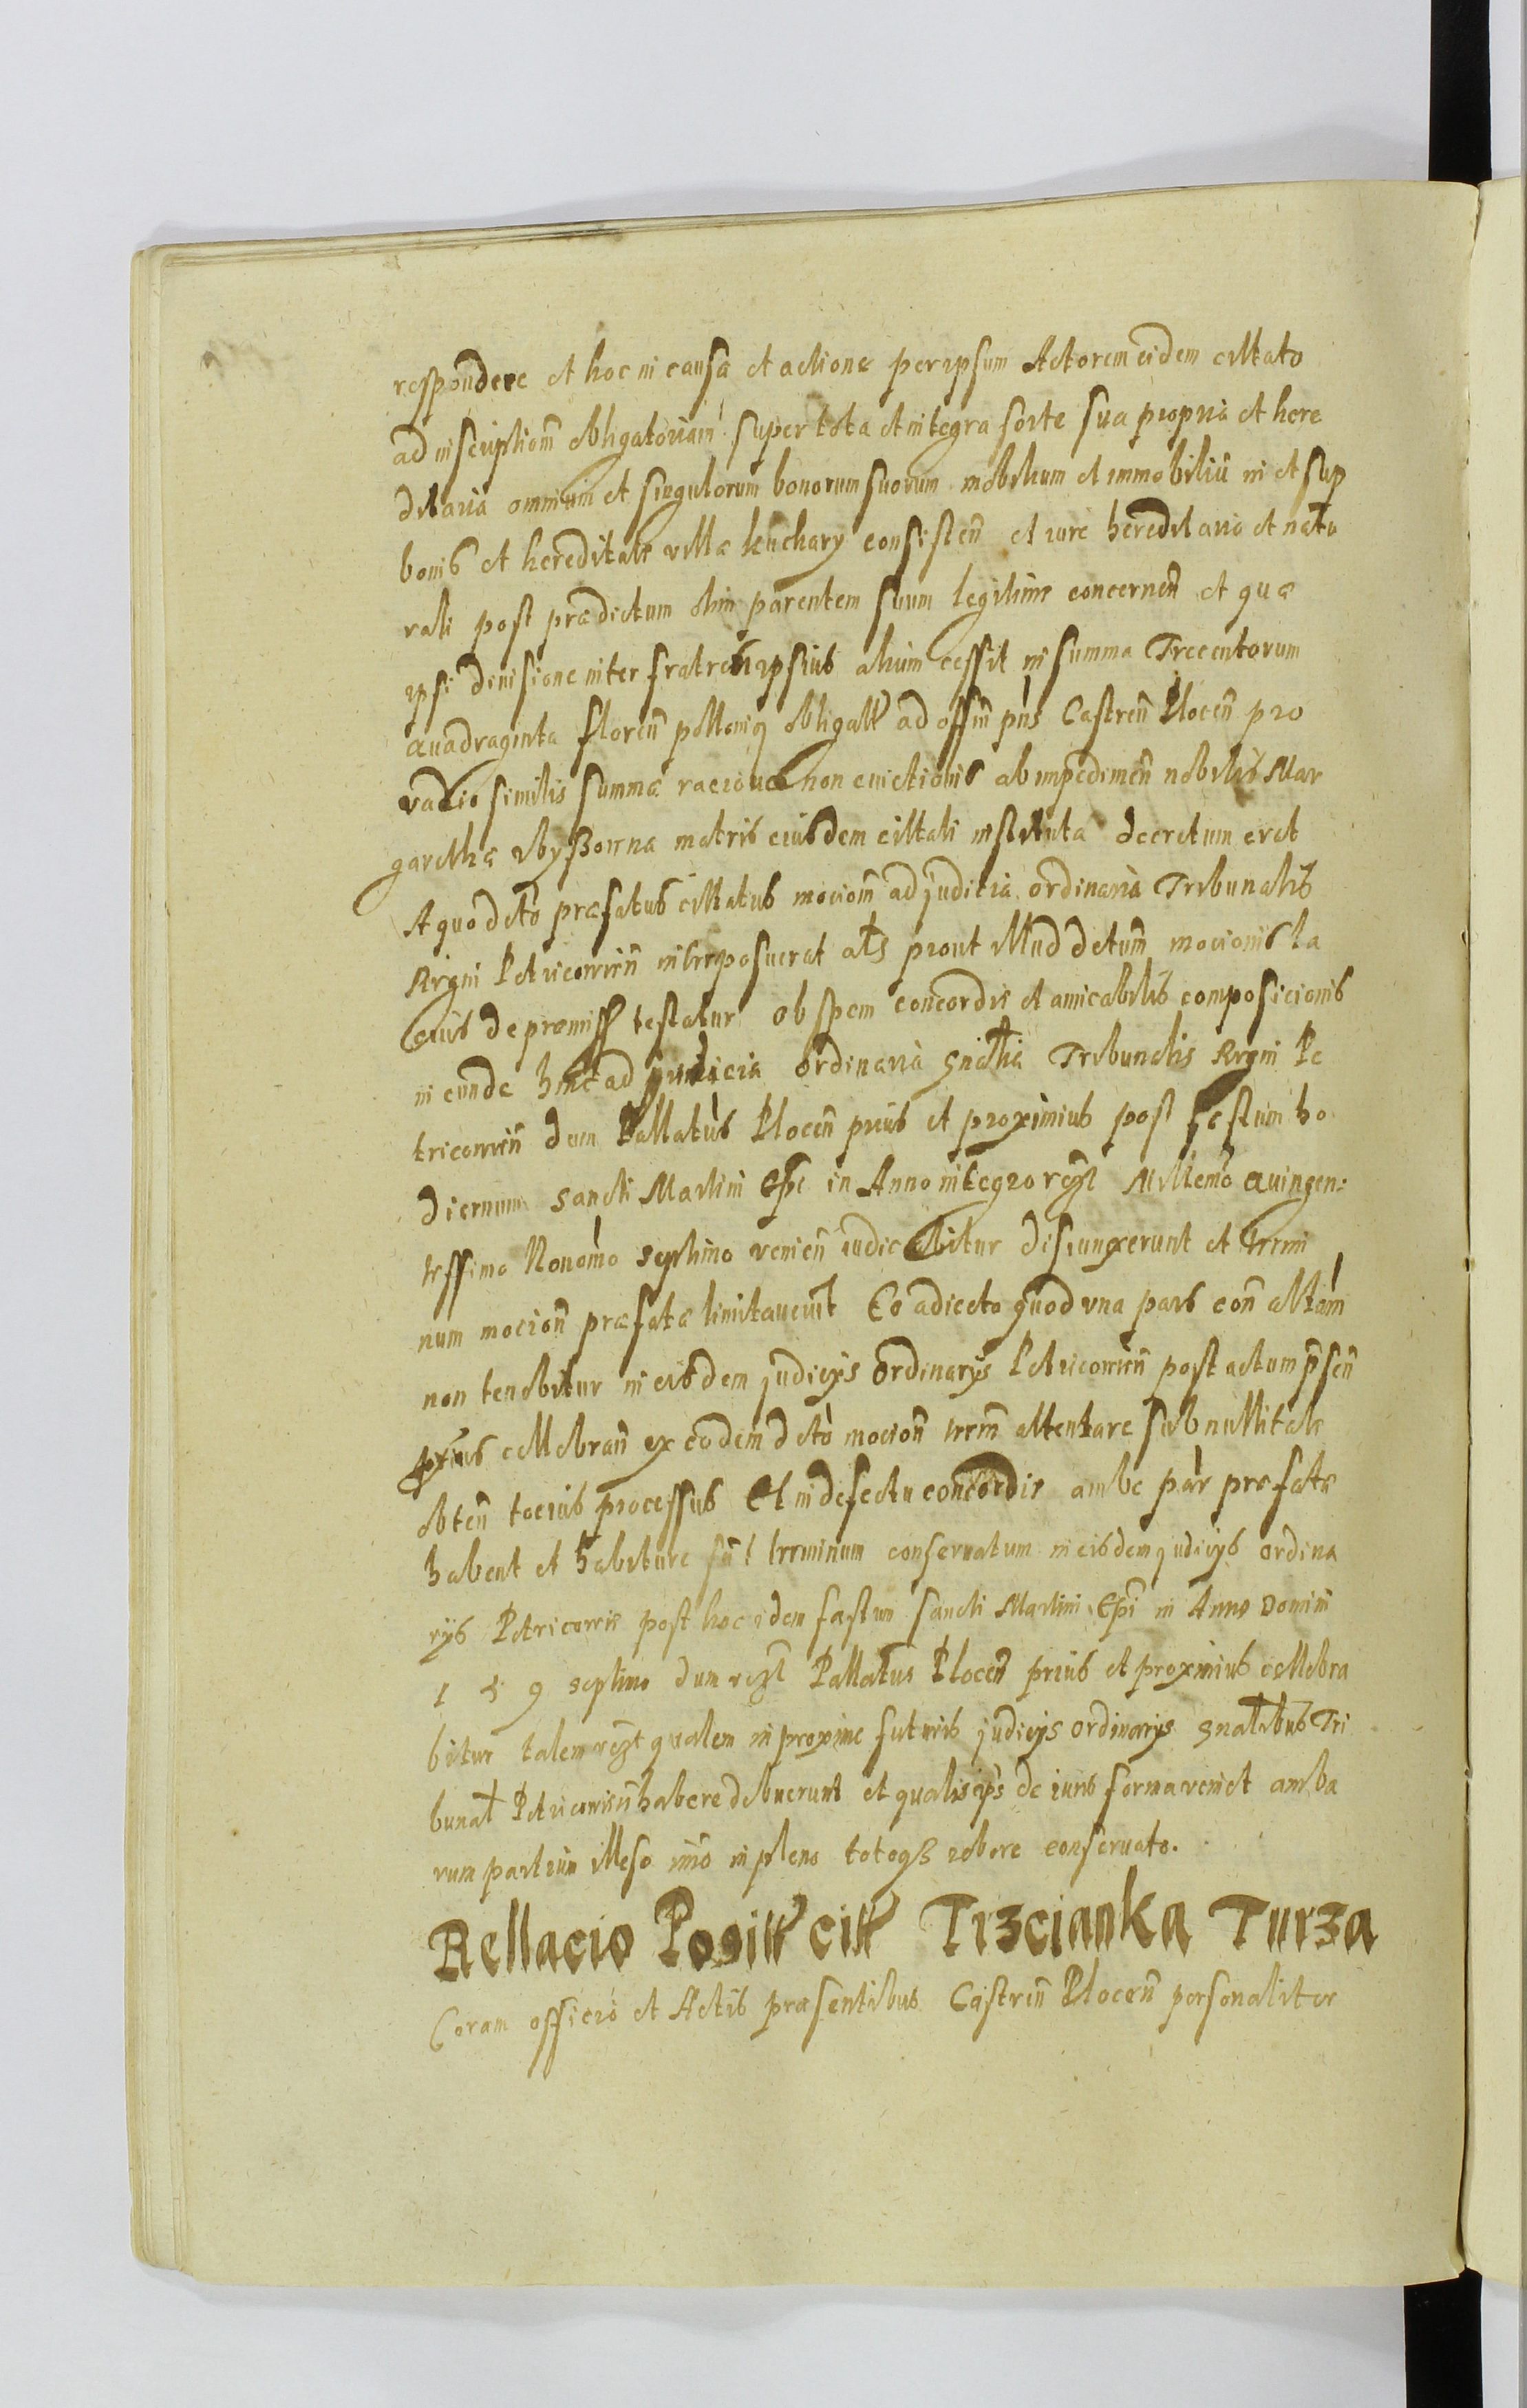 respondere et hoc in causa et actione per ipsum Actorem eidem cittato
ad inscriptiom̄ obligatoriam super tota et integra sorte sua propria et here
ditaria omnium et singulorum bonorum suorum mobilium et immobiliū in et sup
bonis et hereditate villæ kuchary consisteñ et iure hereditario et natu
rali post prædictum olim parentem suum legitime concerneñ et quæ
ipsi diuisione inter fratres ipsius alium cessit in summa Trecentorum
quadraginta floreñ pollonic obligatt ad offim̄ pñs Castreñ Ploceñ pro
vadio similis summæ racione non euictionis ab impedimeñ nobilis Mar
garethæ matris eiusdem cittati instituta decretum erat
A quo dcto præfatus cittatus mociom̄ ad judicia ordinaria Tribunalis
Regni Petricouieñ interposuerat als prout illud dctum mocionis la
cius de præmiss testatur ob spem concordie et amicabilis composicionis
ineunde hinc ad judicia ordinaria gnalia Tribunalis Regni Pe
tricouieñ dum Pallatus Ploceñ prius et proximius post festum ho
diernum sancti Martini Epi in Anno integro Millemo quingen:
tessimo Nonomo septimo venieñ iudicabitur disiunxerunt et termi
num mocioñ præfatæ limitauerūt Eo adiecto quod vna pars coñ alteram
non tenebitur in eisdem judicijs ordinarijs Petricouieñ post actum pñseñ
prius cellebrañ ex eodem dcto mocioñ term̄ attentare sub nullitate
obteñ tocius processus Et in defectu concordie ambe par præfate
habent et habiture sūt terminum conseruatum in eisdem judicijs ordina
rijs Petricouieñ post hoc idem fastum sancti Martini Epi in Anno Domini
1 5 9 septimo dum Pallatus Ploceñ prius et proximius cellebra
bitur talem qualem in proxime futuris judicijs ordinarijs gnalibus Tri
bunal Petricouieñ habere debuerunt et qualis ips de iuris forma veniet amba
rum partium illeso imo in pleno totoqz robore conseruato.
Rellacio Positt citt Trzcianka Turza
Coram officio et Actis præsentibus Castreñ Ploceñ personaliter